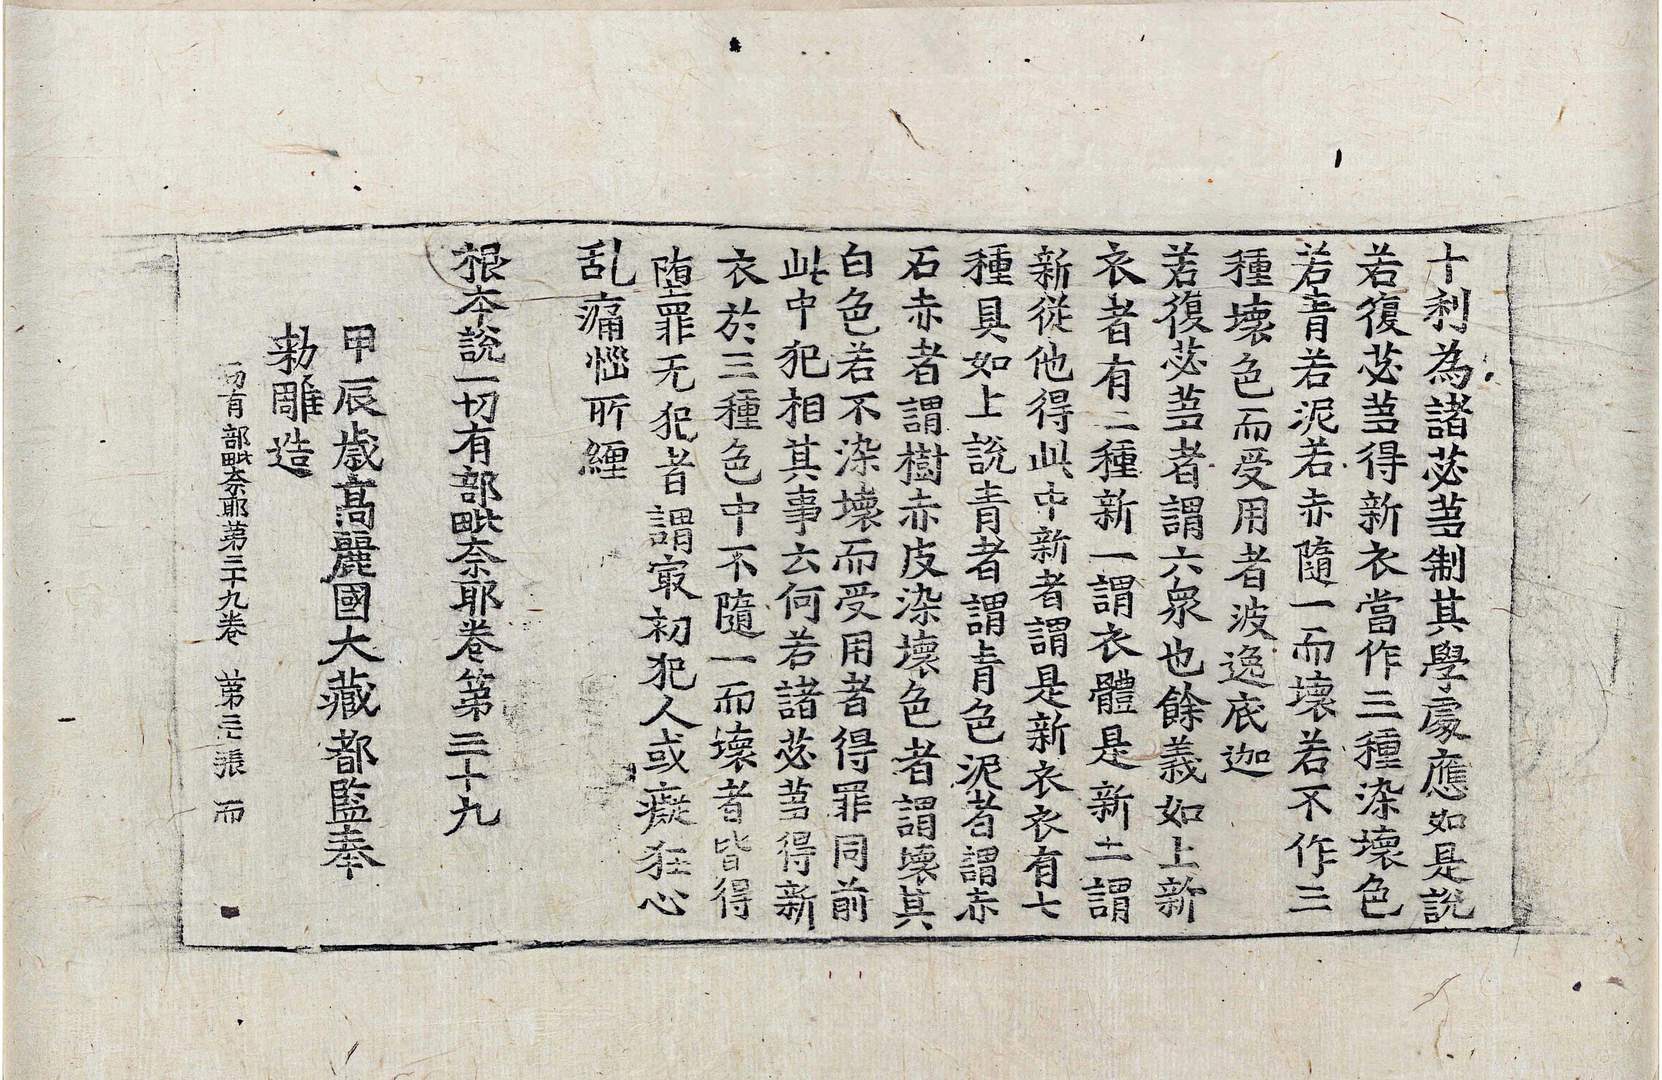 十利為諸苾芻制其學處應如是說
若復苾芻得新衣當作三種染壞色
若青若泥若赤隨一而壞若不作三
種壞色而受用者波逸底迦
若復苾芻者謂六衆也餘義如上新
衣者有二種新一謂衣體是新二謂
新從他得此中新者謂是新衣衣有七
種具如上說青者謂青色泥者謂赤
石赤者謂樹赤皮染壞色者謂壞其
白色若不染壞而受用者得罪同前
此中犯相其事云何若諸苾芻得新
衣於三種色中不隨一而壞者皆得
墮罪无犯者謂㝡初犯人或癡狂心
乱痛惱所纏
根本說一切有部毗奈耶卷第三十九
甲辰歲高麗國大藏都監奉
勑雕造
一切有部毗奈耶第三十九卷 第三張 而